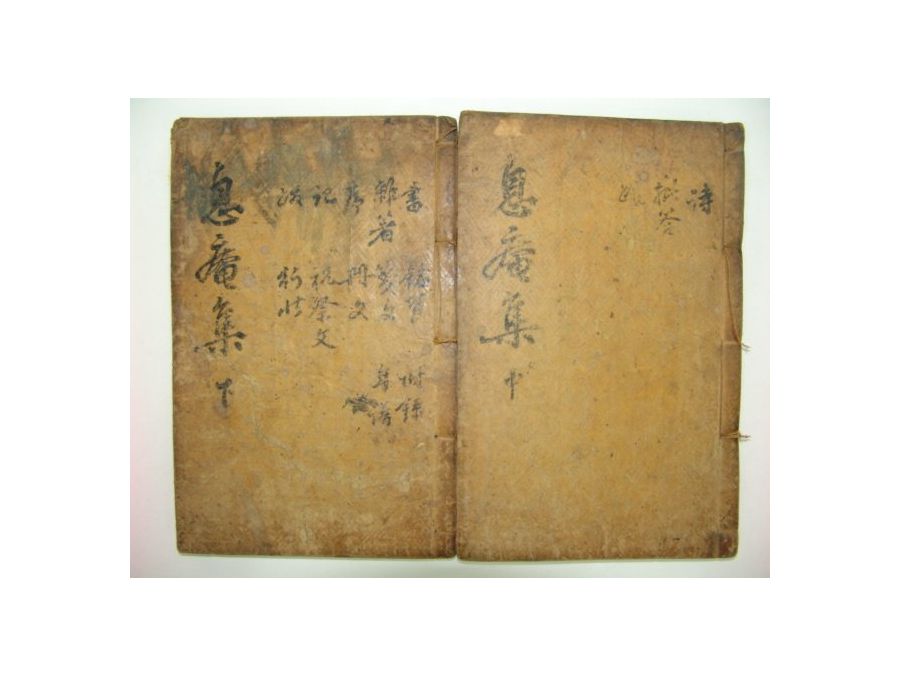 詩
批答
息庵集 中
書 附錄
雜著 箋文 年譜
序 冊文
記 祝祭文
跋 行狀
息庵集 下